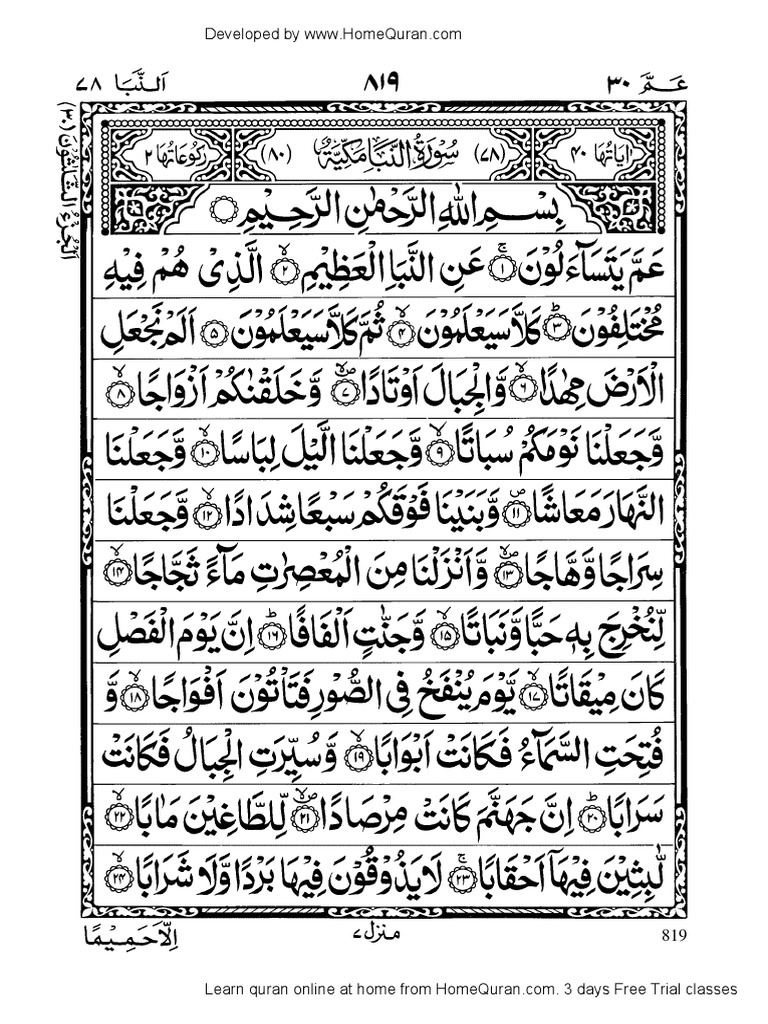 Developed by www.HomeQuran.com
عَمَّ ٣٠
٨١٩
اَلنَّبَا ٧٨
اَلْجُزْءُ الثَّلٰثُوْنَ (٣٠)
اٰيَاتُهَا ٤٠
(٧٨) سُوْرَةُ النَّبَاِ مَكِّيَّةٌ (٨٠)
رُكُوْعَاتُهَا ٢
بِسْمِ اللّٰهِ الرَّحْمٰنِ الرَّحِيْمِ
عَمَّ يَتَسَآءَلُوْنَ ۚ‏ ﴿١﴾ عَنِ النَّبَاِ الْعَظِيْمِ ۙ‏ ﴿٢﴾ الَّذِىْ هُمْ فِيْهِ
مُخْتَلِفُوْنَ ؕ‏ ﴿٣﴾ كَلَّا سَيَعْلَمُوْنَ ۙ‏ ﴿٤﴾ ثُمَّ كَلَّا سَيَعْلَمُوْنَ ﴿٥﴾ اَلَمْ نَجْعَلِ
الْاَرْضَ مِهٰدًا ۙ‏ ﴿٦﴾ وَّالْجِبَالَ اَوْتَادًا ۪ۙ‏ ﴿٧﴾ وَّخَلَقْنٰكُمْ اَزْوَاجًا ۙ‏ ﴿٨﴾
وَّجَعَلْنَا نَوْمَكُمْ سُبَاتًا ۙ‏ ﴿٩﴾ وَّجَعَلْنَا الَّيْلَ لِبَاسًا ۙ‏ ﴿١٠﴾ وَّجَعَلْنَا
النَّهَارَ مَعَاشًا ۪‏ ﴿١١﴾ وَّبَنَيْنَا فَوْقَكُمْ سَبْعًا شِدَادًا ۙ‏ ﴿١٢﴾ وَّجَعَلْنَا
سِرَاجًا وَّهَّاجًا ۪ۙ‏ ﴿١٣﴾ وَّاَنْزَلْنَا مِنَ الْمُعْصِرٰتِ مَآءً ثَجَّاجًا ۙ‏ ﴿١٤﴾
لِّنُخْرِجَ بِهٖ حَبًّا وَّنَبَاتًا ۙ‏ ﴿١٥﴾ وَّجَنّٰتٍ اَلْفَافًا ؕ‏ ﴿١٦﴾ اِنَّ يَوْمَ الْفَصْلِ
كَانَ مِيْقَاتًا ۙ‏ ﴿١٧﴾ يَّوْمَ يُنْفَخُ فِى الصُّوْرِ فَتَاْتُوْنَ اَفْوَاجًا ۙ‏ ﴿١٨﴾ وَّ
فُتِحَتِ السَّمَآءُ فَكَانَتْ اَبْوَابًا ۙ‏ ﴿١٩﴾ وَّسُيِّرَتِ الْجِبَالُ فَكَانَتْ
سَرَابًا ؕ‏ ﴿٢٠﴾ اِنَّ جَهَنَّمَ كَانَتْ مِرْصَادًا ۪ۙ‏ ﴿٢١﴾ لِّلطَّاغِيْنَ مَاٰبًا ۙ‏ ﴿٢٢﴾
لّٰبِثِيْنَ فِيْهَآ اَحْقَابًا ۚ‏ ﴿٢٣﴾ لَا يَذُوْقُوْنَ فِيْهَا بَرْدًا وَّلَا شَرَابًا ۙ‏ ﴿٢٤﴾
819
منزل ٧
اِلَّا حَمِيْمًا
Learn quran online at home from HomeQuran.com. 3 days Free Trial classes